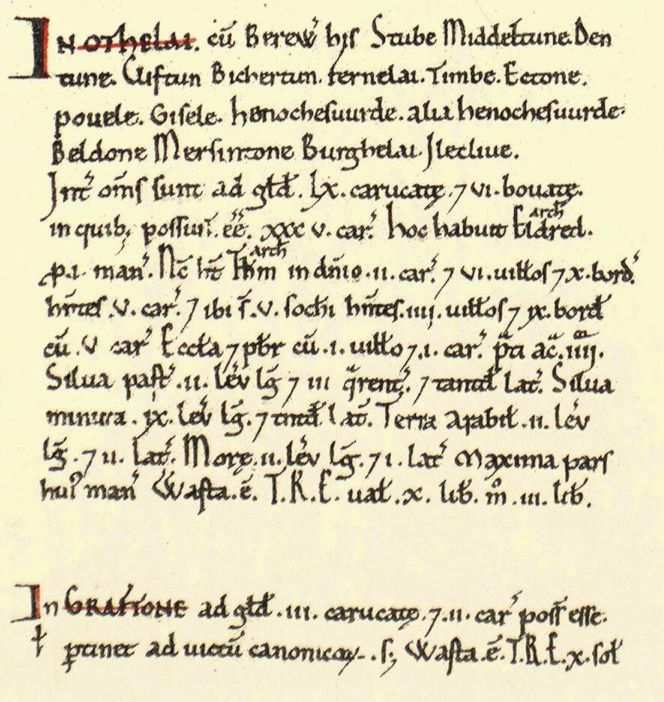 IN OTHELAI. cū Berew᷒ his Stube Middeltune. Den
tune. Cliftun Bichertun. fernelai. Timbe. Ectone.
pouele. Gisele. henochesuurde. alia henochesuurde.
Beldone Mersintone Burghelai. Ilecliue.
Int᷒ om̄s sunt ad gld̄. lx. carucatę. ⁊ vi. bouatę.
in quib; possun̄. ēē. xxx v. car᷒. hoc habuit Eldred. arch
p. i. man᷒. Nc̄ ht̄ Thom arch in dn̄io. ii. car᷒. ⁊ vi. uillos ⁊ x. bord᷒.
hn̄tes. v. car᷒. ⁊ ibi s̄. v. soch̄i hn̄tes. iiii. uillos ⁊ ix. bord
cū. v car᷒ Eccła ⁊ pbr̄ cū. i. uillo ⁊ .i. car᷒. p̄ti ac̄. iiii.
Silua past᷒. ii. lev᷒ lḡ ⁊ iii q̄rent᷒. ⁊ tantd̄ lat᷒. Silua
minuta. ix. lev᷒ lḡ. ⁊ tntd̄ lat̄. Terra arabil. ii. lev᷒
lḡ. ⁊ ii. lat᷒. Morę. ii. lev᷒ lḡ. ⁊ i. lat᷒ Maxima pars
hui᷒ man᷒ Wasta. ē. T.R.E. ual. x. lib. m̊. iii. lib.
In GRAFTONE ad gld̄. iii. carucatę. ⁊ .ii. car᷒ poss̄ esse.
ptinet ad uictū canonicoꝝ. s; Wasta. ē. T.R.E. x. sol